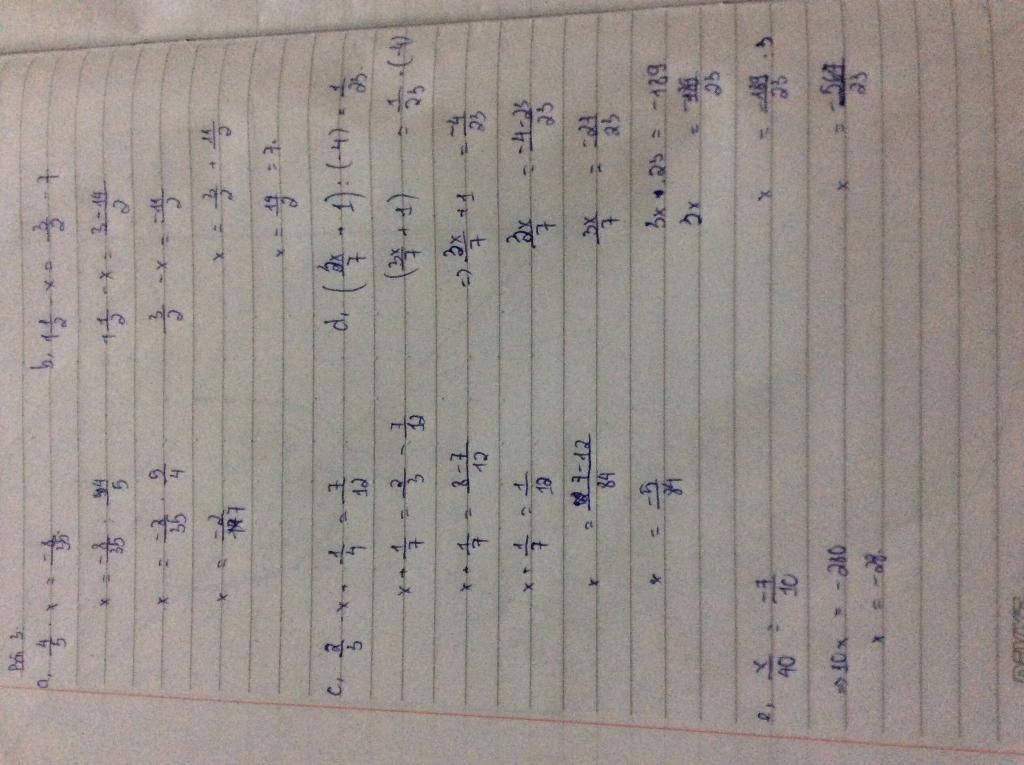 Bài 3.
a, 4/5 . x = -8/35
x = -8/35 : 4/5
x = -8/35 . 5/4
x = -2/7
b, 1 1/2 - x = 3/2 - 7
1 1/2 - x = 3-14/2
3/2 - x = -11/2
x = 3/2 + 11/2
x = 14/2 = 7.
c, 2/3 - x + 1/4 = 7/12
x + 1/7 = 2/3 - 7/12
x + 1/7 = 8-7/12
x + 1/7 = 1/12
x = 7-12/84
x = -5/84
d, (3x/7 + 1) : (-4) = 1/23
(3x/7 + 1) = 1/23 . (-4)
=> 3x/7 + 1 = -4/23
3x/7 = -4-23/23
3x/7 = -27/23
3x . 23 = -189
3x = -189/23
x = -189/23 . 3
x = -567/23
e, x/40 = -7/10
=> 10x = -280
x = -28.